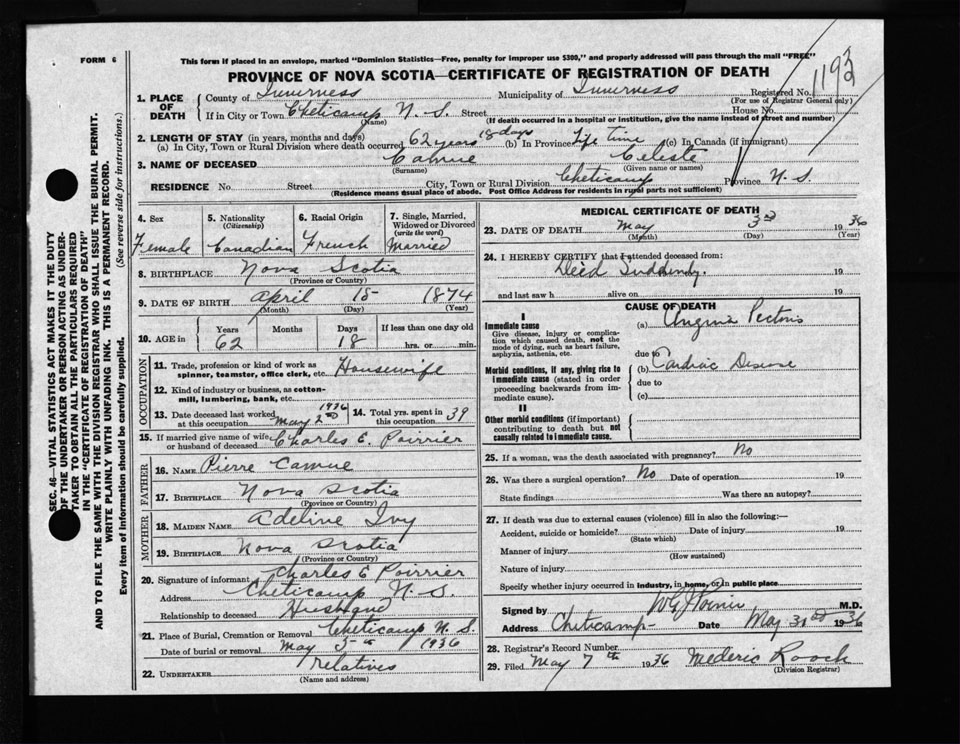 FORM 6
This form if placed in an envelope, marked "Dominion Statistics—Free, penalty for improper use $300," and properly addressed will pass through the mail "FREE"
PROVINCE OF NOVA SCOTIA—CERTIFICATE OF REGISTRATION OF DEATH
1193
1. PLACE OF DEATH
County of Inverness Municipality of Inverness Registered No.
(For use of Registrar General only)
If in City or Town Cheticamp N. S. Street House No.
(Name) (If death occurred in a hospital or institution, give the name instead of street and number)
2. LENGTH OF STAY (in years, months and days)
(a) In City, Town or Rural Division where death occurred 62 years 18 days (b) In Province Life time (c) In Canada (if immigrant)
3. NAME OF DECEASED Camue Celeste
(Surname) (Given name or names)
RESIDENCE No. Street City, Town or Rural Division Cheticamp Province N. S.
(Residence means usual place of abode. Post Office Address for residents in rural parts not sufficient)
4. Sex Female
5. Nationality (Citizenship) Canadian
6. Racial Origin French
7. Single, Married, Widowed or Divorced (write the word) Married
8. BIRTHPLACE Nova Scotia
(Province or Country)
9. DATE OF BIRTH April 15 1874
(Month) (Day) (Year)
10. AGE in Years 62 Months Days 18 If less than one day old hrs. or min.
OCCUPATION
11. Trade, profession or kind of work as spinner, teamster, office clerk, etc. Housewife
12. Kind of industry or business, as cotton-mill, lumbering, bank, etc.
13. Date deceased last worked at this occupation May 2nd 1936
14. Total yrs. spent in this occupation 39
15. If married give name of wife or husband of deceased Charles E. Poirrier
FATHER
16. NAME Pierre Camue
17. BIRTHPLACE Nova Scotia
(Province or Country)
MOTHER
18. MAIDEN NAME Adeline Ivy
19. BIRTHPLACE Nova Scotia
(Province or Country)
20. Signature of informant Charles E Poirrier
Address Cheticamp N. S.
Relationship to deceased Husband
21. Place of Burial, Cremation or Removal Cheticamp N. S.
Date of burial or removal May 5th 1936
22. UNDERTAKER Relatives
(Name and address)
MEDICAL CERTIFICATE OF DEATH
23. DATE OF DEATH May 3rd 1936
(Month) (Day) (Year)
24. I HEREBY CERTIFY that I attended deceased from:
Died Suddenly. 19
and last saw h alive on 19
CAUSE OF DEATH
I
Immediate cause
Give disease, injury or complication which caused death, not the mode of dying, such as heart failure, asphyxia, asthenia, etc.
(a) Angina Pectoris
due to
Morbid conditions, if any, giving rise to immediate cause (stated in order proceeding backwards from immediate cause).
(b) Cardiac Disease
due to
(c)
II
Other morbid conditions (if important) contributing to death but not causally related to immediate cause.
25. If a woman, was the death associated with pregnancy? No
26. Was there a surgical operation? No Date of operation 19
State findings Was there an autopsy?
27. If death was due to external causes (violence) fill in also the following:—
Accident, suicide or homicide? Date of injury 19
(State which)
Manner of injury
(How sustained)
Nature of injury
Specify whether injury occurred in industry, in home, or in public place
Signed by M.D.
Address Cheticamp Date May 3rd 1936
28. Registrar's Record Number
29. Filed May 7th 1936 Mederic Roach
(Division Registrar)
SEC. 46—VITAL STATISTICS ACT MAKES IT THE DUTY OF THE UNDERTAKER OR PERSON ACTING AS UNDERTAKER TO OBTAIN ALL THE PARTICULARS REQUIRED IN THE "CERTIFICATE OF REGISTRATION OF DEATH" AND TO FILE THE SAME WITH THE DIVISION REGISTRAR WHO SHALL ISSUE THE BURIAL PERMIT.
WRITE PLAINLY WITH UNFADING INK. THIS IS A PERMANENT RECORD.
Every item of Information should be carefully supplied. (See reverse side for instructions.)